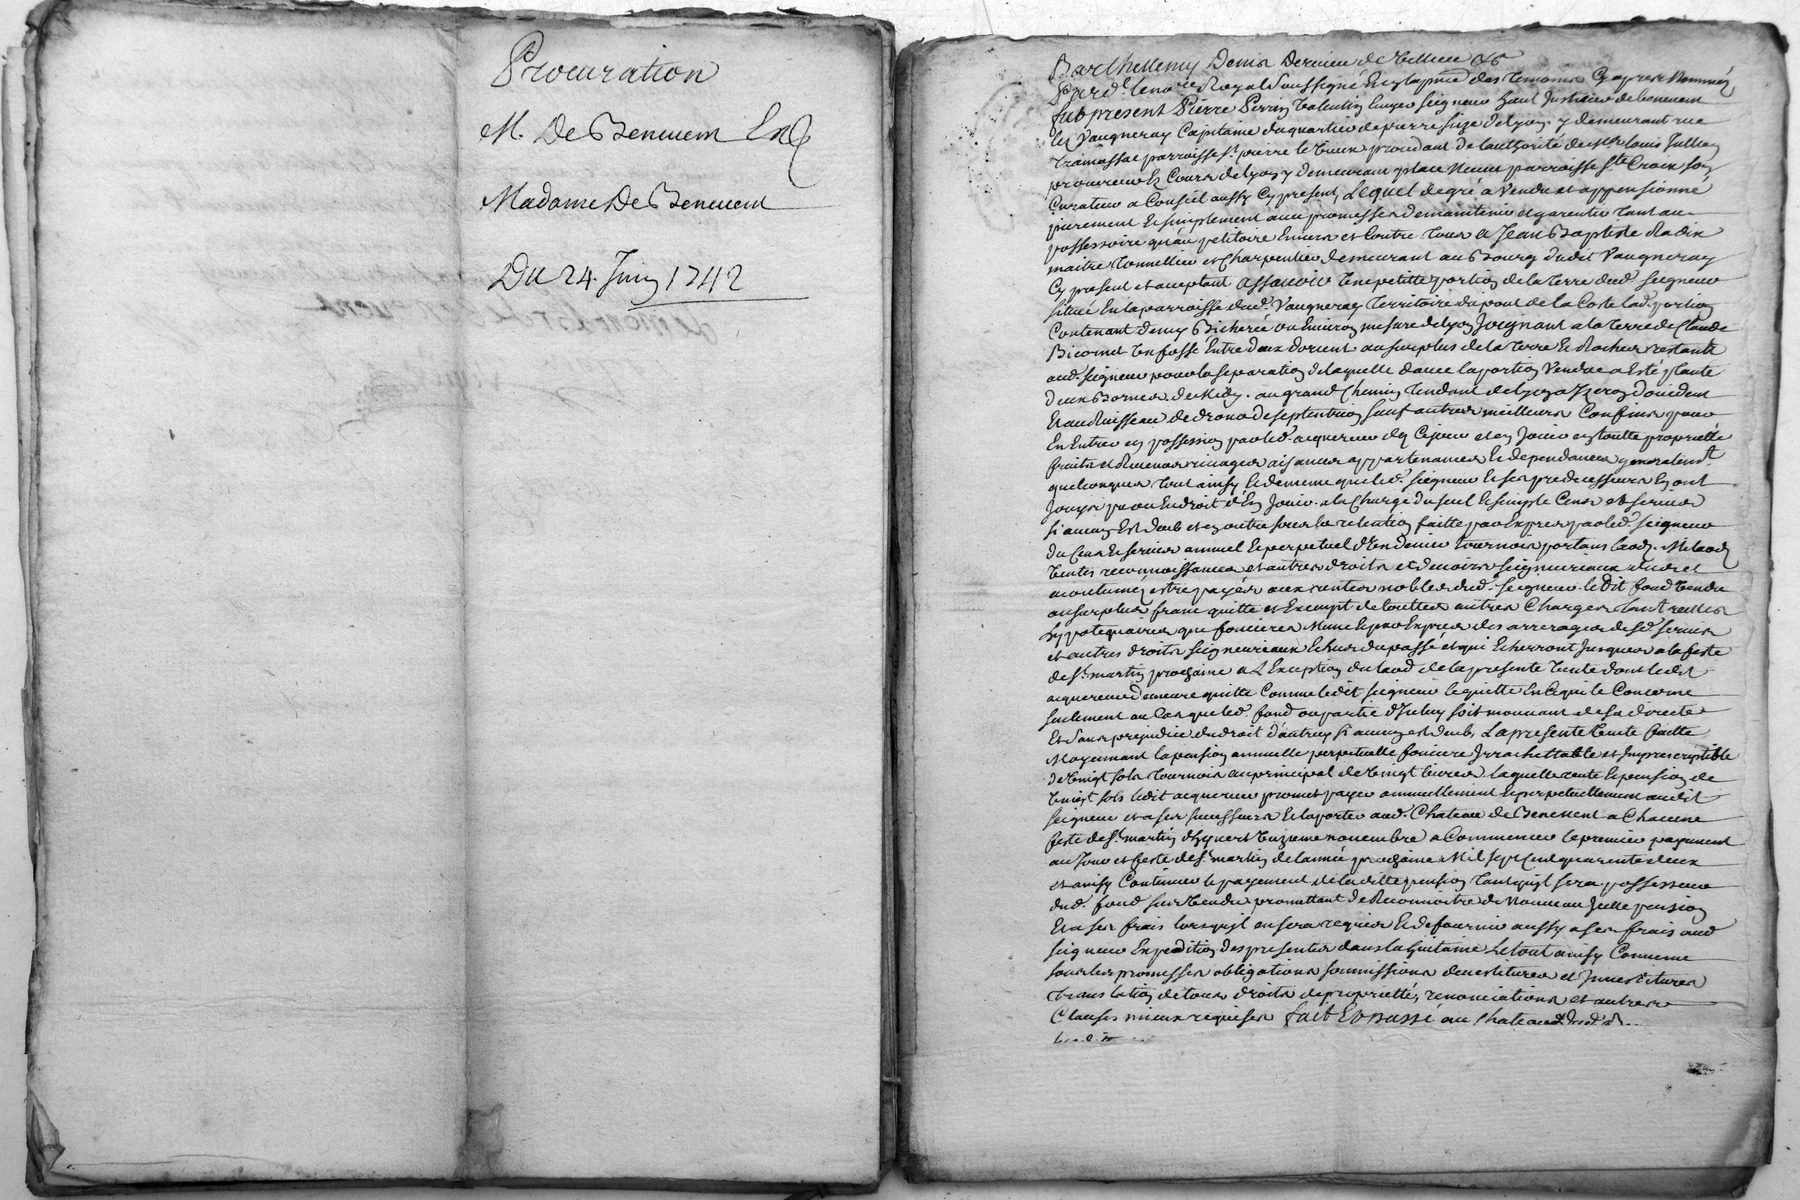 Procuration
M. De Benevem
Madame De Benevem
Du 24. Juin 1742
Barthellemy Denis Dernieu de
Royal soussigné En la pnce des temoins Cy apres Nommés
fut present Pierre Perrin Valentin Ecuyer seigneur haut Justicier de benevem
Et Vaugneray Capitaine du quartier de pierre size de Lyon y demeurant rue
tramassac parroisse st pierre le vieux procedant de l'authorité de Me louis Jullien
procureur Ez Cours de Lyon y demeurant place Neuve parroisse ste Croix son
Curateur a Conseil aussy Cy present, Lequel de gré a Vendu et appensionné
purement et simplement avec promesses de maintenir et garentir tant au
possessoire qu'au petitoire Envers et Contre tous a Jean Baptiste Radix
maitre tonnellier et Charpentier demeurant au Bourg dudit Vaugneray
Cy present et acceptant assavoir Une petitte portion de la terre dud. seigneur
située En la parroisse dud. Vaugneray territoire du pont de la Coste lad. portion
Contenant demy Bicherée ou Environ mesure de Lyon Joignant a la terre de Claude
Bicornet Un fossé Entre deux d'orient au surplus de la terre et Rocher restant
aud. seigneur pour la separation de laquelle d'avec la portion Vendue a Esté planté
deux Bornes de midy. au grand Chemin tendant de Lyon a d'occident
Et au Ruisseau de de septentrion sauf autres meilleurs Confins pour
En Entrer en possession par led. acquereur des Ce jour et en Jouir en toutte proprietté
fruits et Revenus aisances appartenances et dependances generalemt.
quelconques tout ainsy et de meme que led. seigneur et ses predecesseurs En ont
Jouy ou En droit d'En Jouir. a la Charge du seul et simple Cens et servis
si aucun Est dub et en outre sous la retention faitte par Expres par led. seigneur
du Cens et servis annuel et perpetuel d'Un denier tournois portant laods. Milaods
Ventes reconnoissances et autres droits et devoirs seigneuriaux dus et
acoutumés estre payés aux rentes nobles dud. seigneur. le dit fond Vendu
au surplus franc quitte et Exempt de touttes autres Charges tant reelles
hypotequaires que foncieres Meme et par Expres des arrerages desd. servis
et autres droits seigneuriaux Echus du passé et qui Echerront Jusques a la feste
de st. martin prochaine a L'Exception du laod de la presente Vente dont ledit
acquereur demeure quitte Comme ledit seigneur le quitte En Ce qui le Concerne
seulement au Cas que led. fond ou partie d'Iceluy soit mouvant de sa directe
Et sans prejudice du droit d'autruy si aucun est dub, La presente Vente faitte
Moyennant la pension annuelle perpetuelle fonciere Irrachettable et Imprescriptible
de Vingt sols tournois au principal de Vingt livres laquelle rente et pension de
Vingt sols ledit acquereur promet payer annuellement et perpetuellement audit
seigneur et a ses successeurs et la porter aud. Chateau de Benevent a Chacune
feste de st. martin d'hyvert Unzieme novembre a Commencer le premier payement
au Jour et feste de st. martin de l'année prochaine Mil sept Cent quarente deux
et ainsy Continuer le payement de laditte pension tant qu'il sera possesseur
dud. fond sus Vendu promettant de Reconnoitre de Nouveau Jcelle pension
Et a ses frais lorsqu'jl en sera requis Et de fournir aussy a ses frais aud
seigneur Expedition des presentes dans la huitaine Le tout ainsy Convenu
sous les promesses obligations soumissions devestitures et Jnvestitures
translation de tous droits de proprietté, renonciations et autres
Clauses mieux requises fait Et passé au Chateau